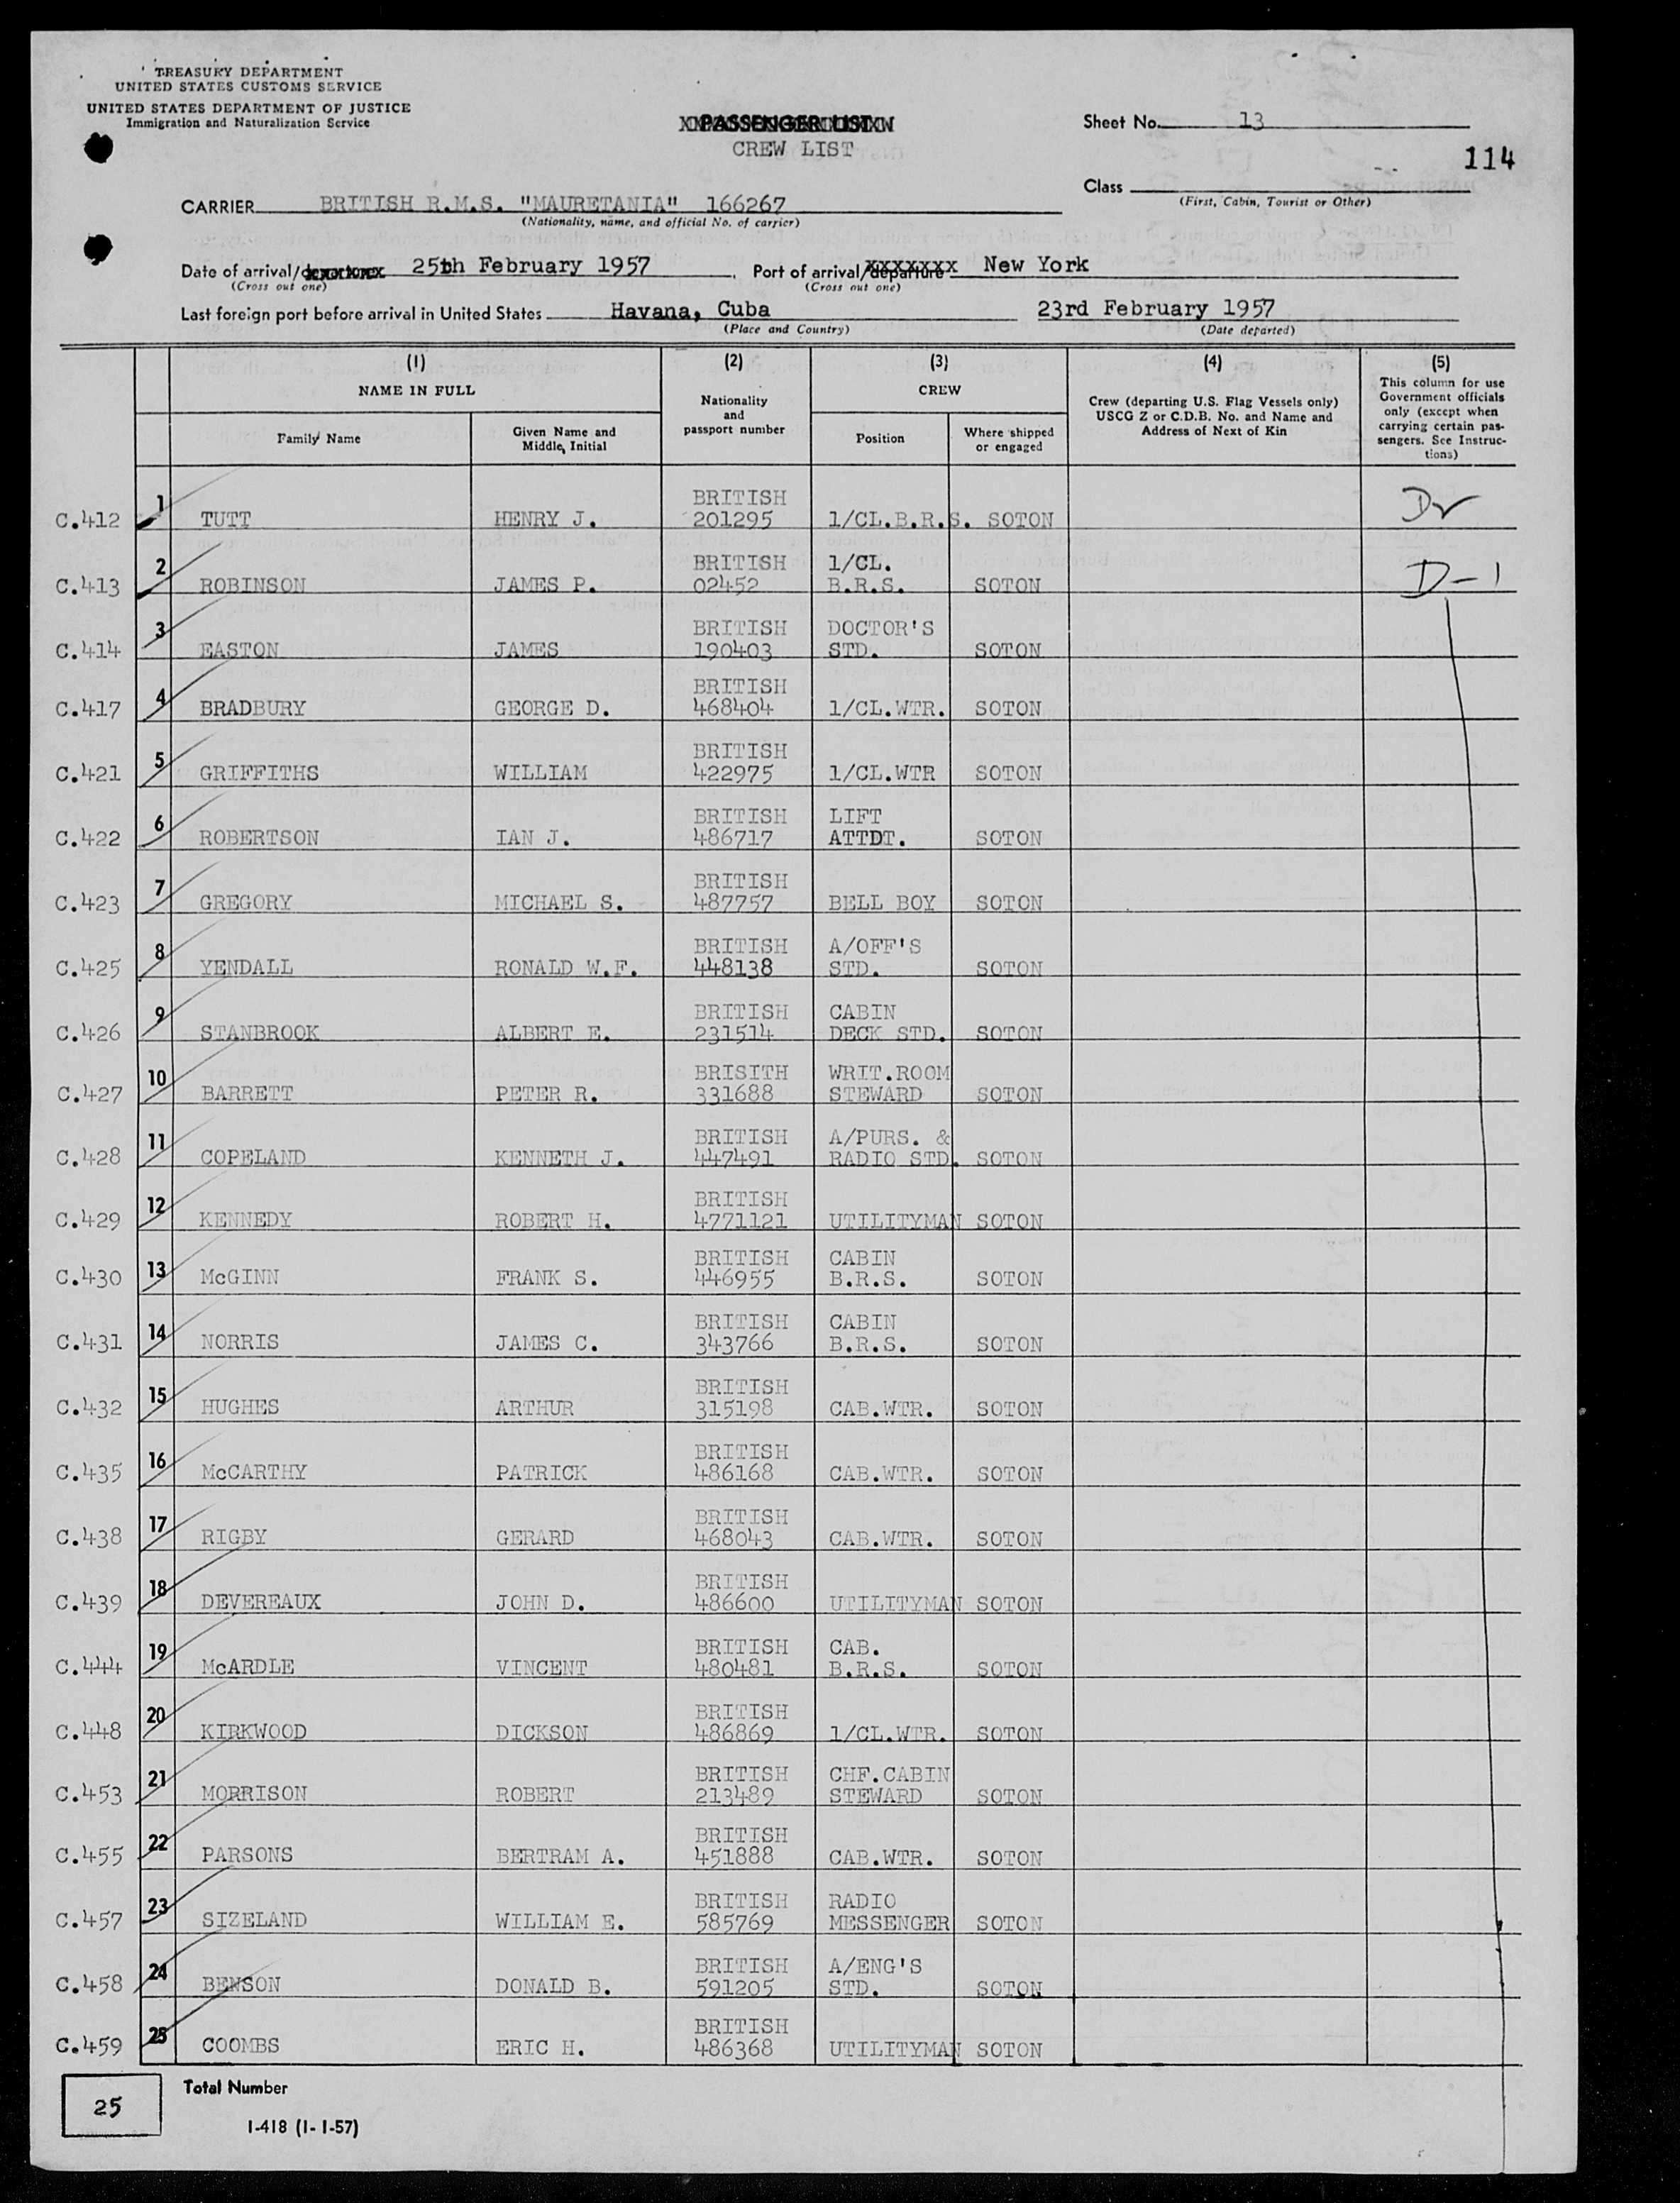 TREASURY DEPARTMENT
UNITED STATES CUSTOMS SERVICE
UNITED STATES DEPARTMENT OF JUSTICE
Immigration and Naturalization Service
PASSENGER LIST
CREW LIST
Sheet No. 13
114
Class
(First, Cabin, Tourist or Other)
CARRIER BRITISH R.M.S. "MAURETANIA" 166267
(Nationality, name, and official No. of carrier)
Date of arrival/ 25th February 1957 Port of arrival/departure New York
(Cross out one) (Cross out one)
Last foreign port before arrival in United States Havana, Cuba 23rd February 1957
(Place and Country) (Date departed)
(1) (2) (3) (4) (5)
NAME IN FULL
Family Name
Given Name and
Middle Initial
Nationality
and
passport number
CREW
Position
Where shipped
or engaged
Crew (departing U.S. Flag Vessels only)
USCG Z or C.D.B. No. and Name and
Address of Next of Kin
This column for use
Government officials
only (except when
carrying certain pas-
sengers. See Instruc-
tions)
1 BRITISH
C.412 TUTT HENRY J. 201295 1/CL.B.R.S. SOTON
2 BRITISH 1/CL.
C.413 ROBINSON JAMES P. 02452 B.R.S. SOTON D-1
3 BRITISH DOCTOR'S
C.414 EASTON JAMES 190403 STD. SOTON
4 BRITISH
C.417 BRADBURY GEORGE D. 468404 1/CL.WTR. SOTON
5 BRITISH
C.421 GRIFFITHS WILLIAM 422975 1/CL.WTR SOTON
6 BRITISH LIFT
C.422 ROBERTSON IAN J. 486717 ATTDT. SOTON
7 BRITISH
C.423 GREGORY MICHAEL S. 487757 BELL BOY SOTON
8 BRITISH A/OFF'S
C.425 YENDALL RONALD W.F. 448138 STD. SOTON
9 BRITISH CABIN
C.426 STANBROOK ALBERT E. 231514 DECK STD. SOTON
10 BRISITH WRIT.ROOM
C.427 BARRETT PETER R. 331688 STEWARD SOTON
11 BRITISH A/PURS. &
C.428 COPELAND KENNETH J. 447491 RADIO STD. SOTON
12 BRITISH
C.429 KENNEDY ROBERT H. 4771121 UTILITYMAN SOTON
13 BRITISH CABIN
C.430 McGINN FRANK S. 446955 B.R.S. SOTON
14 BRITISH CABIN
C.431 NORRIS JAMES C. 343766 B.R.S. SOTON
15 BRITISH
C.432 HUGHES ARTHUR 315198 CAB.WTR. SOTON
16 BRITISH
C.435 McCARTHY PATRICK 486168 CAB.WTR. SOTON
17 BRITISH
C.438 RIGBY GERARD 468043 CAB.WTR. SOTON
18 BRITISH
C.439 DEVEREAUX JOHN D. 486600 UTILITYMAN SOTON
19 BRITISH CAB.
C.444 McARDLE VINCENT 480481 B.R.S. SOTON
20 BRITISH
C.448 KIRKWOOD DICKSON 486869 1/CL.WTR. SOTON
21 BRITISH CHF.CABIN
C.453 MORRISON ROBERT 213489 STEWARD SOTON
22 BRITISH
C.455 PARSONS BERTRAM A. 451888 CAB.WTR. SOTON
23 BRITISH RADIO
C.457 SIZELAND WILLIAM E. 585769 MESSENGER SOTON
24 BRITISH A/ENG'S
C.458 BENSON DONALD B. 591205 STD. SOTON
25 BRITISH
C.459 COOMBS ERIC H. 486368 UTILITYMAN SOTON
25 Total Number
I-418 (1-1-57)